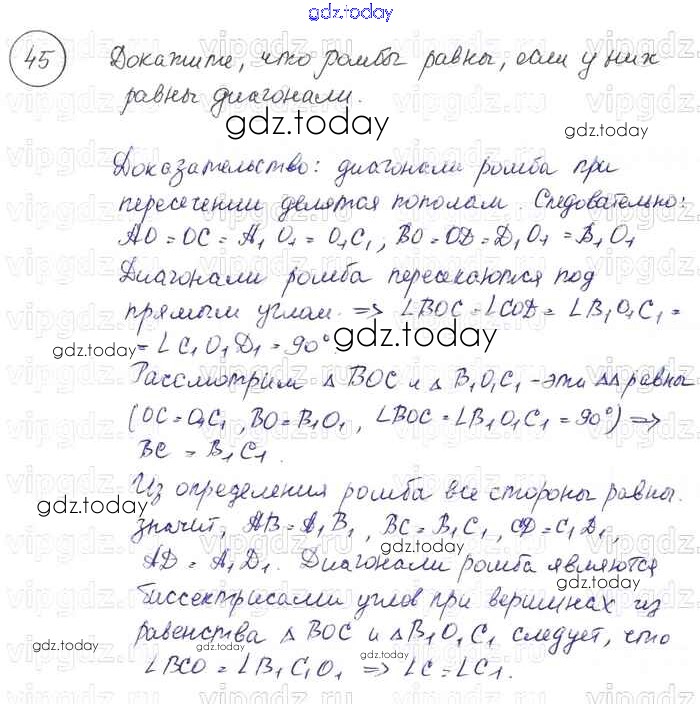 gdz.today
45 Докажите, что ромбы равны, если у них
равны диагонали.
gdz.today
Доказательство: диагонали ромба при
пересечении делятся пополам. Следовательно:
AO = OC = A₁O₁ = O₁C₁, BO = OD = D₁O₁ = B₁O₁
Диагонали ромба пересекаются под
прямым углом. => ∠BOC = ∠COD = ∠B₁O₁C₁ =
= ∠C₁O₁D₁ = 90°.
gdz.today
gdz.today
Рассмотрим △BOC и △B₁O₁C₁ - эти △△ равны
(OC = O₁C₁, BO = B₁O₁, ∠BOC = ∠B₁O₁C₁ = 90°) =>
BC = B₁C₁.
Из определения ромба все стороны равны.
gdz.today
значит, AB = A₁B₁, BC = B₁C₁, CD = C₁D₁,
gdz.today
AD = A₁D₁. Диагонали ромба являются
gdz.today
биссектрисами углов при вершинах из
равенства △BOC и △B₁O₁C₁ следует, что
∠BCO = ∠B₁C₁O₁ => ∠C = ∠C₁.
gdz.today